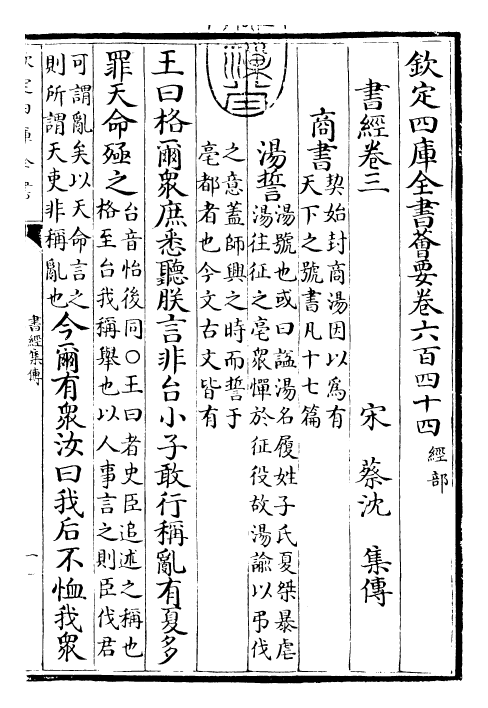 欽定四庫全書薈要卷六百四十四
經部
書經卷三
宋 蔡沈 集傳
商書
契始封商湯因以爲有
天下之號書凡十七篇
湯誓
湯號也或曰諡湯名履姓子氏夏桀暴虐
湯往征之亳衆憚於征役故湯諭以弔伐
之意蓋師興之時而誓于
亳都者也今文古文皆有
王曰格爾衆庶悉聽朕言非台小子敢行稱亂有夏多
罪天命殛之
台音怡後同○王曰者史臣追述之稱也
格至台我稱舉也以人事言之則臣伐君
可謂亂矣以天命言之
則所謂天吏非稱亂也
今爾有衆汝曰我后不恤我衆
書經集傳
一